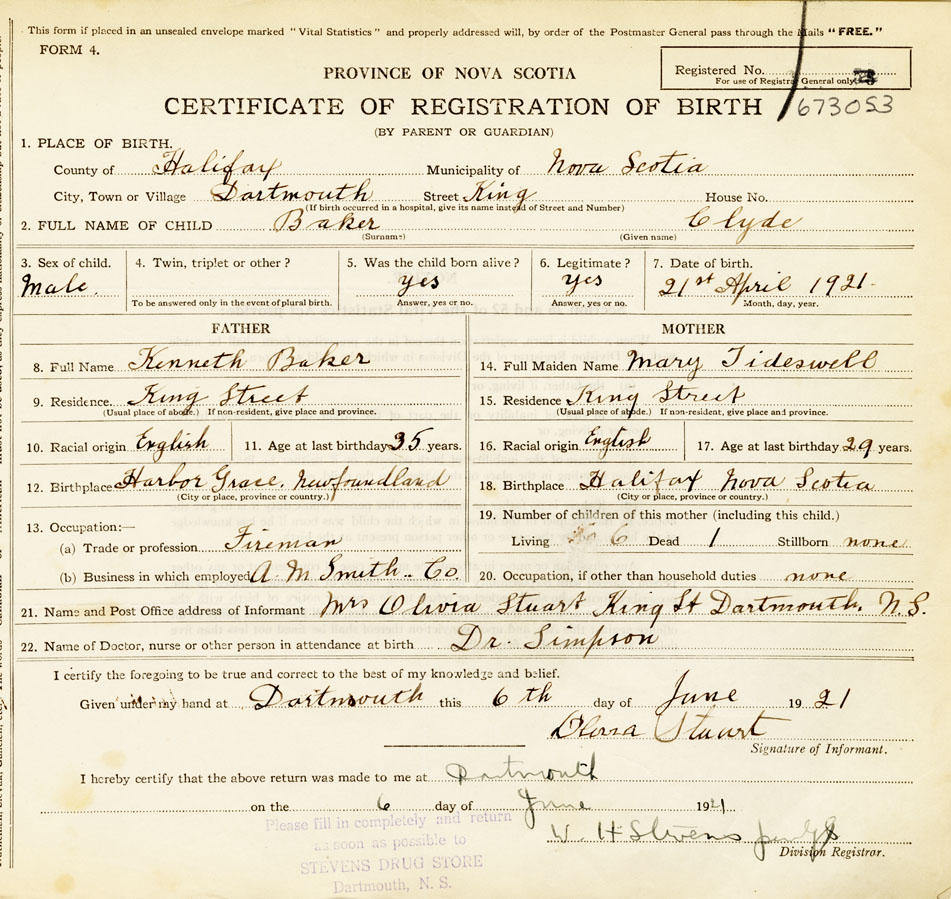 This form if placed in an unsealed envelope marked "Vital Statistics" and properly addressed will, by order of the Postmaster General pass through the Mails "FREE."
FORM 4.
Registered No.
For use of Registrar General only.
PROVINCE OF NOVA SCOTIA
CERTIFICATE OF REGISTRATION OF BIRTH
673053
(BY PARENT OR GUARDIAN)
1. PLACE OF BIRTH.
County of Halifax Municipality of Nova Scotia
City, Town or Village Dartmouth Street King House No.
(If birth occurred in a hospital, give its name instead of Street and Number)
2. FULL NAME OF CHILD Baker Clyde
(Surname) (Given name)
3. Sex of child. 4. Twin, triplet or other? 5. Was the child born alive? 6. Legitimate? 7. Date of birth.
Male. yes yes 21st April 1921
To be answered only in the event of plural birth. Answer, yes or no. Answer, yes or no. Month, day, year.
FATHER
8. Full Name Kenneth Baker
9. Residence. King Street
(Usual place of abode.) If non-resident, give place and province.
10. Racial origin English 11. Age at last birthday 35 years.
12. Birthplace Harbor Grace, Newfoundland
(City or place, province or country.)
13. Occupation:—
(a) Trade or profession Fireman
(b) Business in which employed A. M. Smith Co.
MOTHER
14. Full Maiden Name Mary Tideswell
15. Residence King Street
(Usual place of abode.) If non-resident, give place and province.
16. Racial origin English 17. Age at last birthday 29 years.
18. Birthplace Halifax Nova Scotia
(City or place, province or country.)
19. Number of children of this mother (including this child.)
Living 6 Dead 1 Stillborn none
20. Occupation, if other than household duties none
21. Name and Post Office address of Informant Mrs Olivia Stuart King St Dartmouth. N.S.
22. Name of Doctor, nurse or other person in attendance at birth Dr. Simpson
I certify the foregoing to be true and correct to the best of my knowledge and belief.
Given under my hand at Dartmouth this 6th day of June 1921
Stuart
Signature of Informant.
I hereby certify that the above return was made to me at Dartmouth
on the 6 day of June 1921.
W. H Stevens
Division Registrar.
Please fill in completely and return
as soon as possible to
STEVENS DRUG STORE
Dartmouth, N. S.